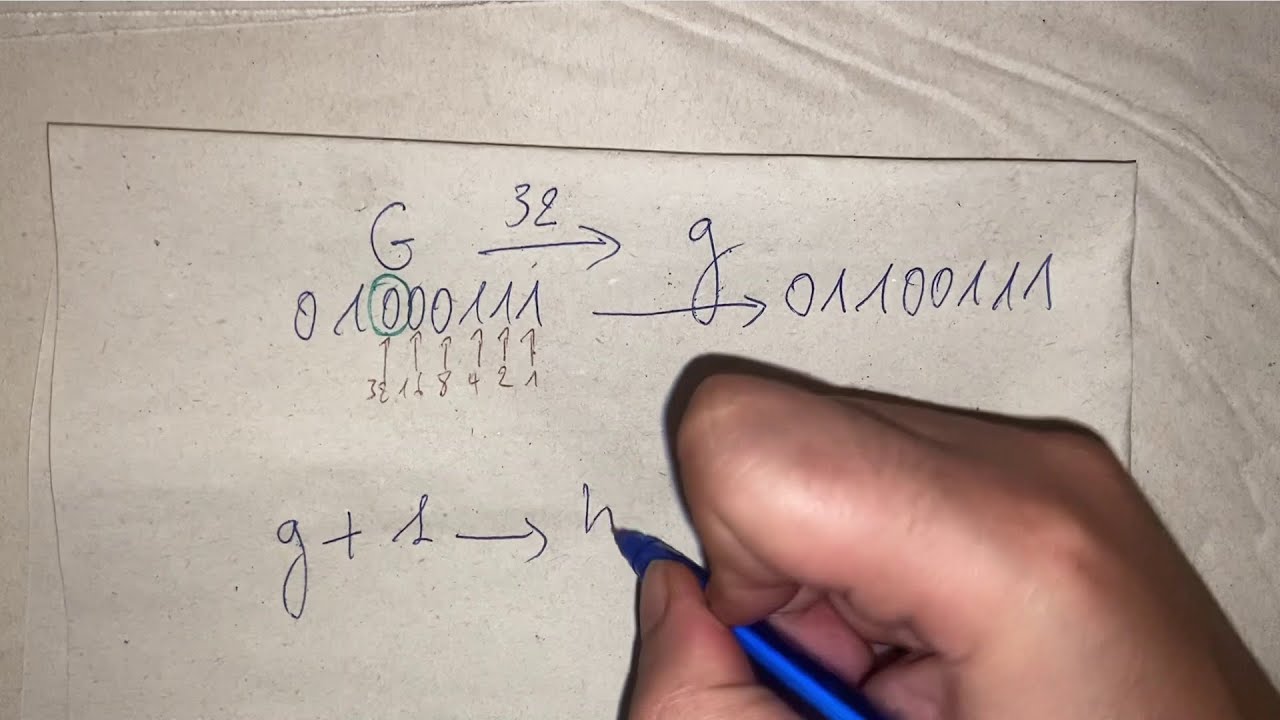 G 32 → g
01000111 → 01100111
↑ ↑ ↑ ↑ ↑ ↑
32 16 8 4 2 1
g + 1 → h